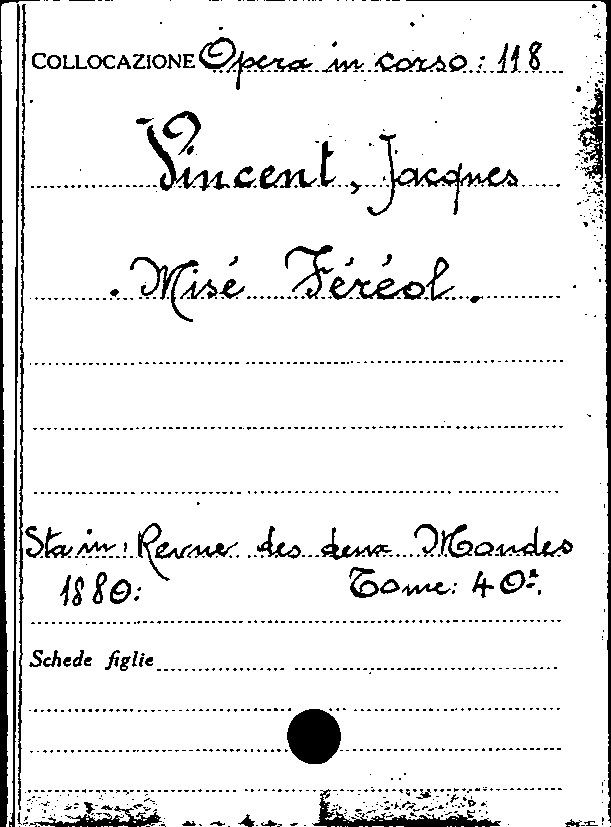 COLLOCAZIONE Opera in corso: 118
Vincent, Jacques
. Misé Féréol .
Sta in: Revue des deux Mondes
1880: Tome: 40º.
Schede figlie